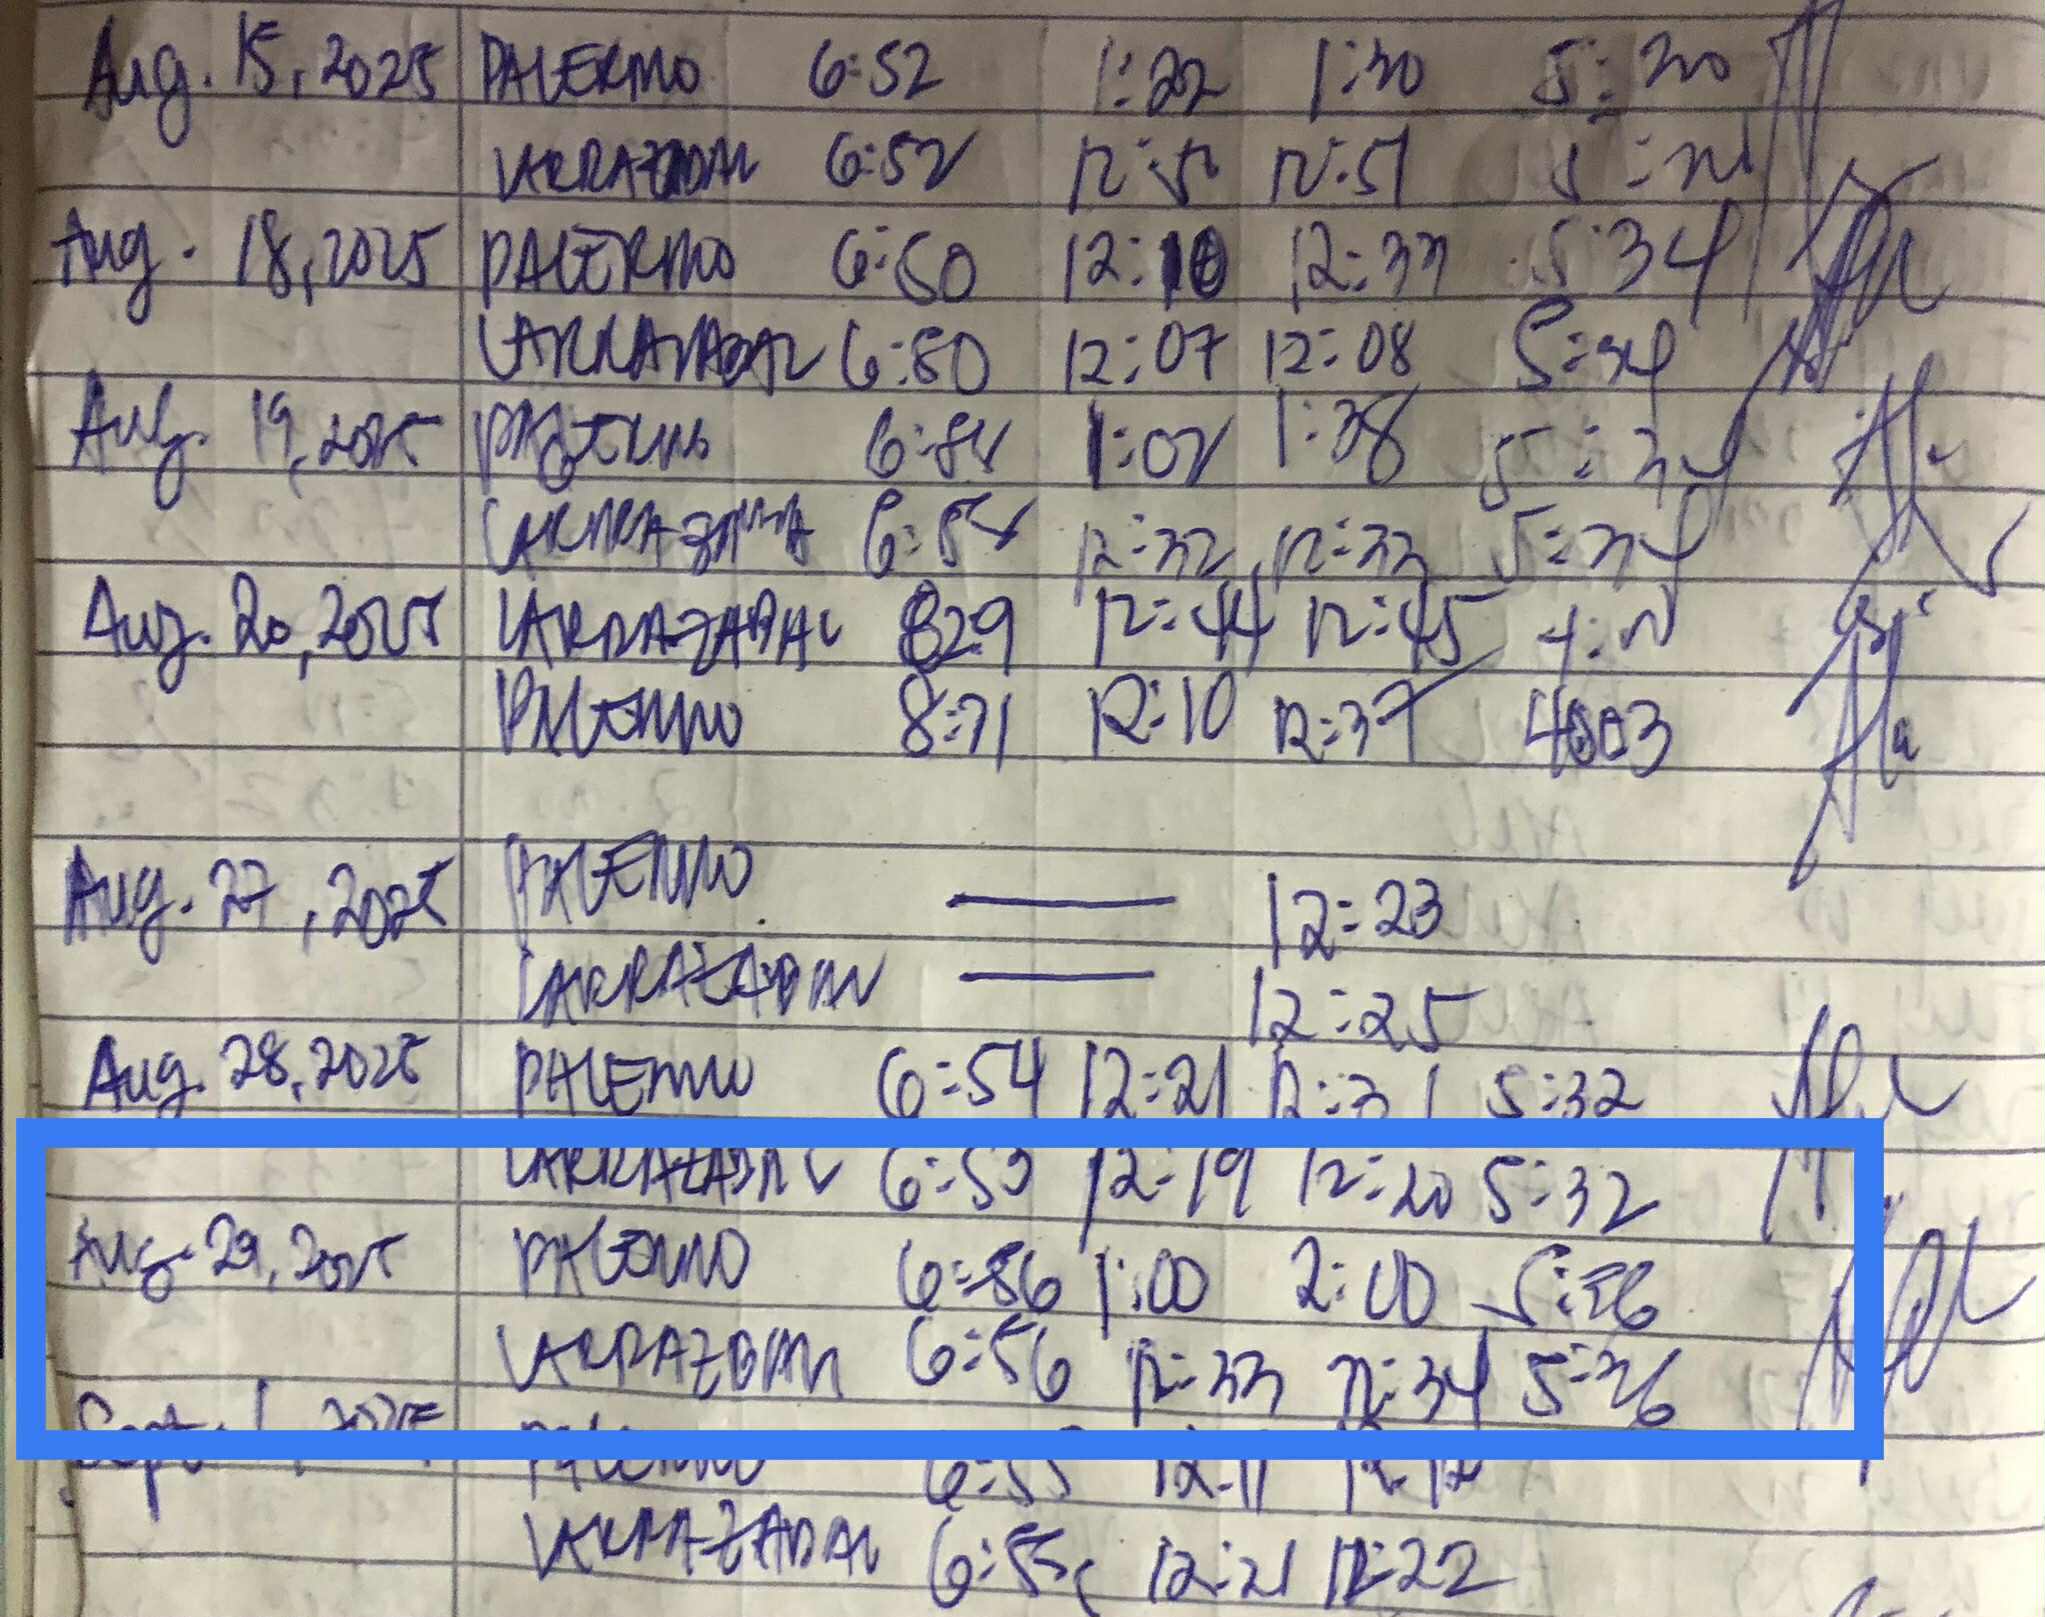 Aug. 15, 2025 PALERMO 6:52 1:22 1:30 5:30
LARRAZABAL 6:52 12:51 5:
Aug. 18, 2025 PALERMO 6:50 12:10 12:33 5:34
LARRAZABAL 6:50 12:07 12:08 5:34
Aug. 19, 2025 PALERMO 6:54 1:02 1:38 5:34
LARRAZABAL 6:54 12:32 12:33 5:34
Aug. 20, 2025 LARRAZABAL 829 12:44 12:45
PALERMO 8:31 12:10 12:37 4:03
Aug. 27, 2025 PALERMO — 12:23
LARRAZABAL — 12:25
Aug. 28, 2025 PALERMO 6:54 12:21 12:31 5:32
LARRAZABAL 6:53 12:19 12:20 5:32
Aug. 29, 2025 PALERMO 6:56 1:00 2:00 5:36
LARRAZABAL 6:56 12:33 12:34 5:36
Sept. 1, 2025 PALERMO 6:55 12:11 12:12
LARRAZABAL 6:55 12:21 12:22